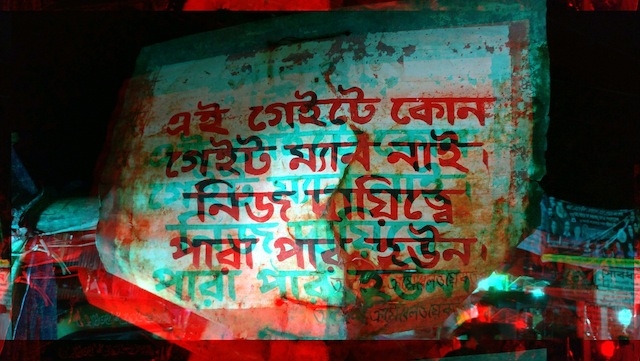 এই গেইটে কোন
গেইট ম্যান নাই।
নিজ দায়িত্বে
পারা পার হউন।